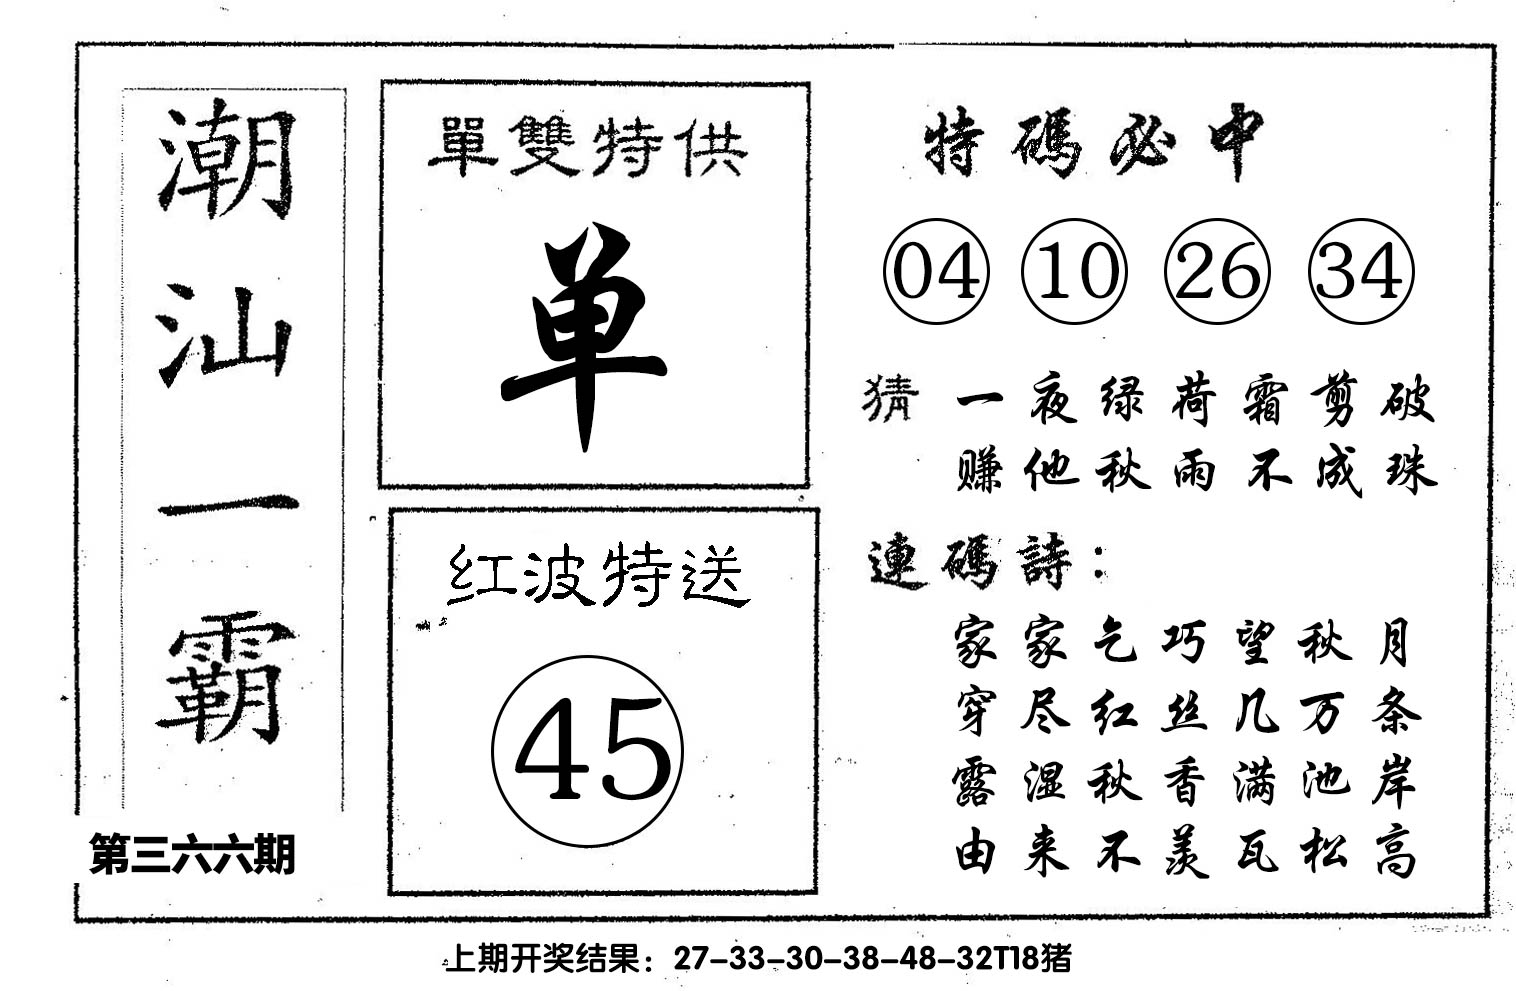 潮汕一霸
第三六六期
單雙特供
单
红波特送
45
特碼必中
04 10 26 34
猜 一夜绿荷霜剪破
赚他秋雨不成珠
連碼詩：
家家乞巧望秋月
穿尽红丝几万条
露湿秋香满池岸
由来不羡瓦松高
上期开奖结果：27-33-30-38-48-32T18猪